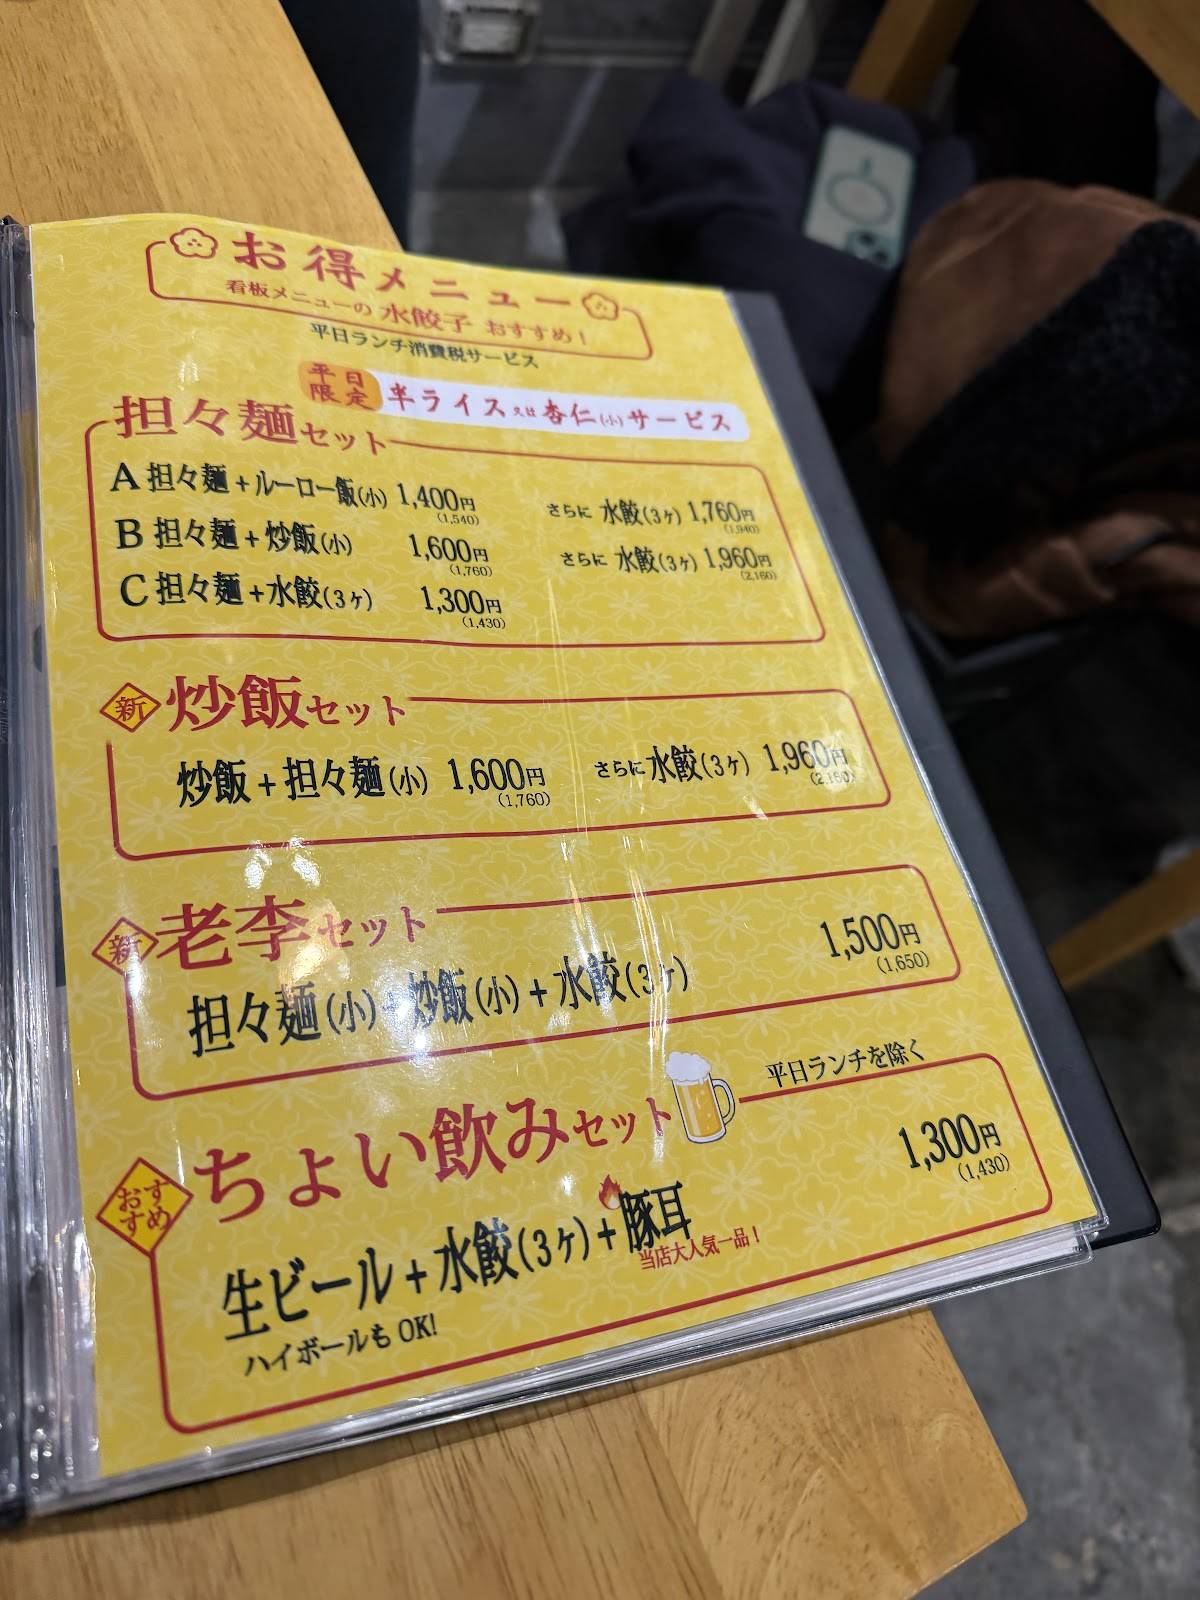 お得メニュー
看板メニューの 水餃子 おすすめ！
平日ランチ消費税サービス
平日限定 半ライス又は杏仁(小)サービス
担々麺セット
A 担々麺+ルーロー飯(小) 1,400円 さらに 水餃(3ヶ) 1,760円
(1,540) (1,940)
B 担々麺+炒飯(小) 1,600円 さらに 水餃(3ヶ) 1,960円
(1,760) (2,160)
C 担々麺+水餃(3ヶ) 1,300円
(1,430)
新 炒飯セット
炒飯+担々麺(小) 1,600円 さらに 水餃(3ヶ) 1,960円
(1,760) (2,160)
新 老李セット
1,500円
(1,650)
担々麺(小)+炒飯(小)+水餃(3ヶ)
平日ランチを除く
おすすめ ちょい飲みセット
1,300円
(1,430)
生ビール+水餃(3ヶ)+豚耳
当店大人気一品！
ハイボールも OK!